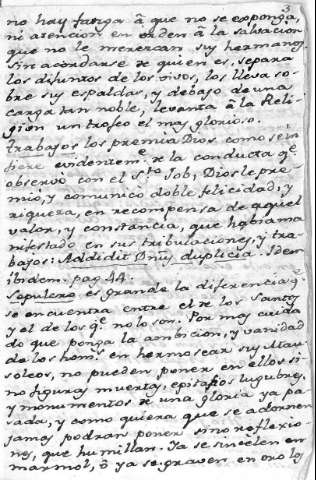 3
no hay fatiga â que no se exponga,
ni atencion en orden â la salvacion
que no le merezcan sus hermanos
sin acordarse de quien es, separa
los difuntos de los vivos, los lleva so-
bre sus espaldas, y debajo de una
carga tan noble, levanta â la Reli-
gion un trofeo el mas glorioso.
Trabajos los premia Dios como se in-
fiere evidentem.e de la conducta q.e
observó con el S.to Job; Dios le pre-
mió, y comunicó doble felicidad, y
riqueza, en recompensa de aquel
valor, y constancia, que había ma
nifestado en sus tribulaciones, y tra-
bajos: Addidit Dnus duplicia. Idem
ibidem. pag. 44.
Sepulcro es grande la diferencia q.e
se encuentra entre el de los Santos
y el de los q.e no lo son. Por mas cuida
do que ponga la ambicion, y vanidad
de los hom.s en hermosear sus Mau-
soleos, no pueden poner en ellos si-
no figuras muertas, epitafios lugubres,
y monumentos de una gloria ya pa-
sada, y como quiera que se adornen
jamas podran poner sino reflexio-
nes, que humillan. Ya se sincelen en
marmol, ô ya se graven en oro los